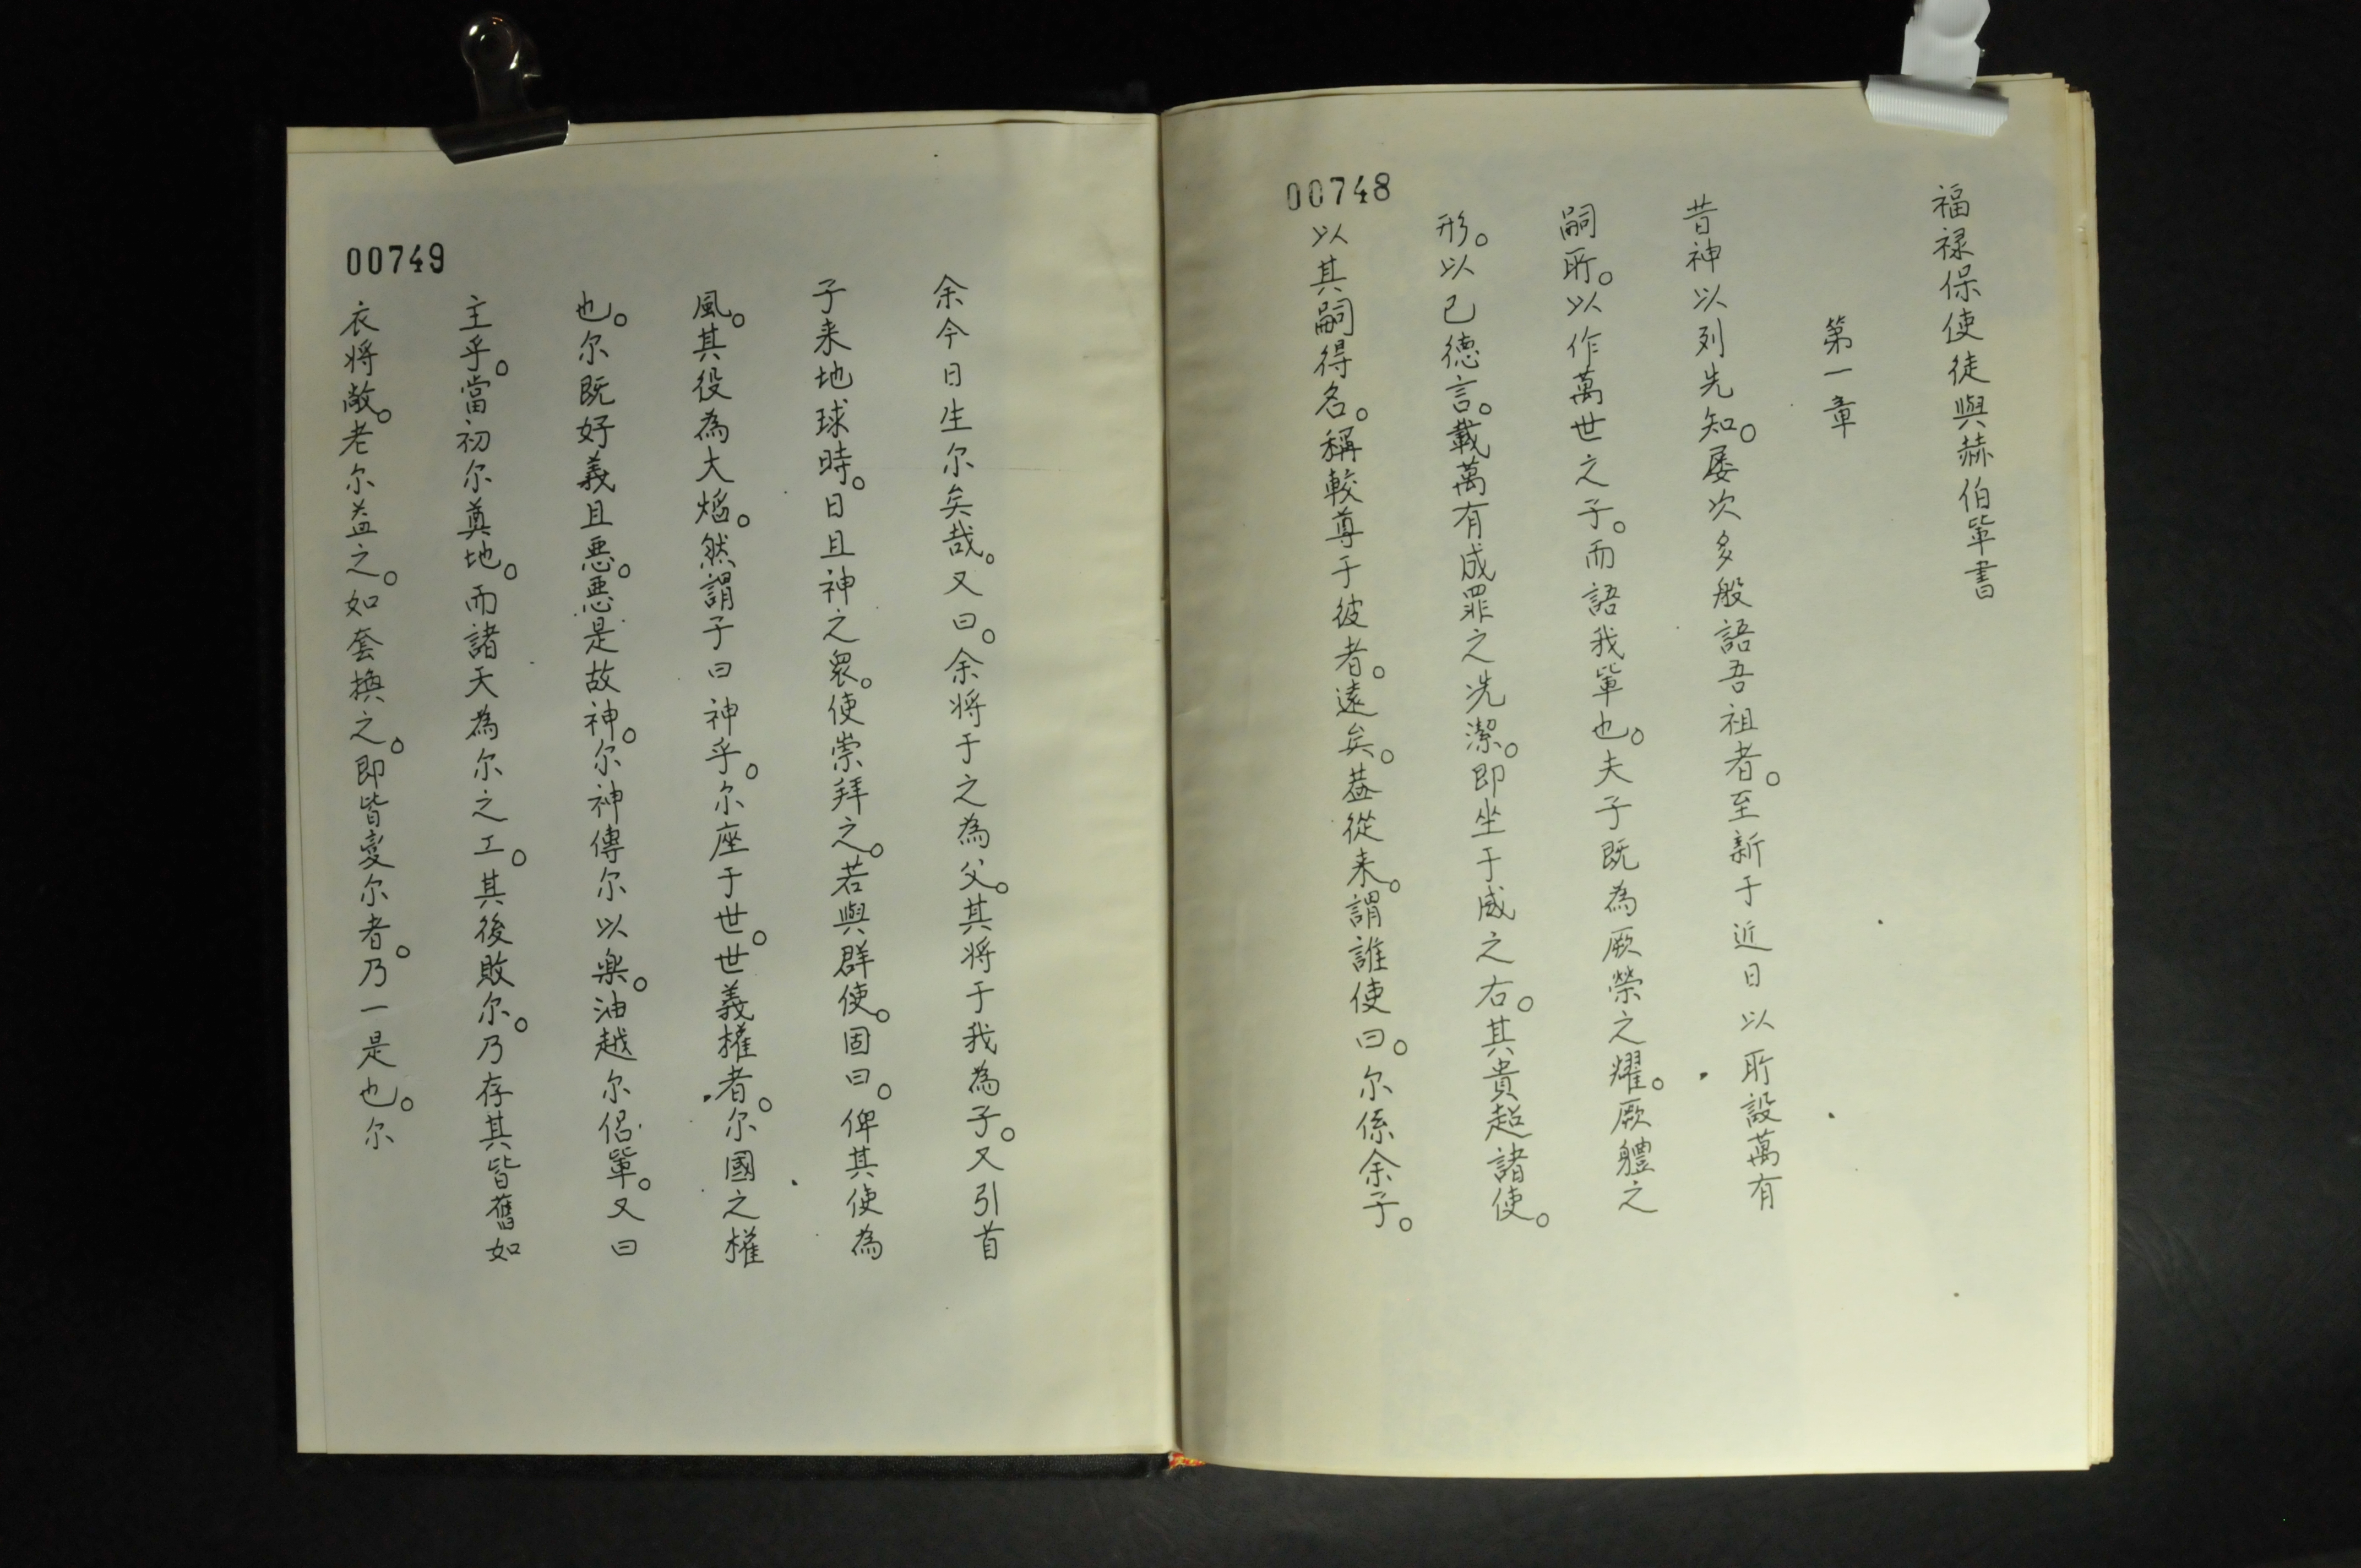 00748
福禄保使徒與赫伯軰書
第一章
昔神以列先知。屡次多般語吾祖者。至新于近日以所設萬有
嗣所。以作萬世之子。而語我軰也。夫子既為厥榮之耀。厥軆之
形。以已德言。載萬有成罪之洗潔。即坐于威之右。其貴超諸使。
以其嗣得名。稱較尊于彼者。遠矣。葢從来。謂誰使曰。尔係余子。
00749
余今日生尔矣哉。又曰。余将于之為父。其将于我為子。又引首
子来地球時。日且神之衆。使崇拜之。若與群使。固曰。俾其使為
風。其役為大熖。然謂子曰神乎。尔座于世。世義權者。尔國之權
也。尔既好義且惡。惡是故神。尔神傳尔以樂。油越尔侣軰。又曰
主乎。當初尔奠地。而諸天為尔之工。其後敗尔。乃存其皆舊如
衣将敝。老尔益之。如套換之。即皆变尔者。乃一是也。尔